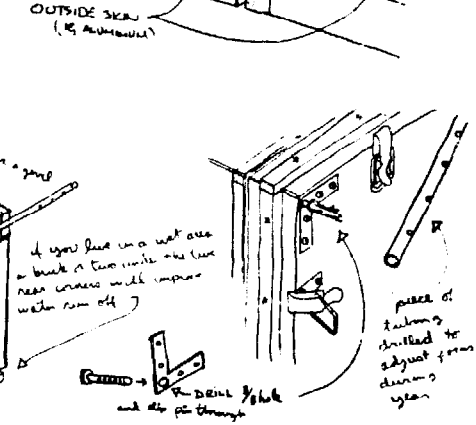 OUTSIDE SKIN
(.18 ALUMINUM)
if you live in a wet area
a brick or two under the two
rear corners will improve
water run off
DRILL hole
and slip pin through
piece of
tubing
drilled to
adjust
during
year